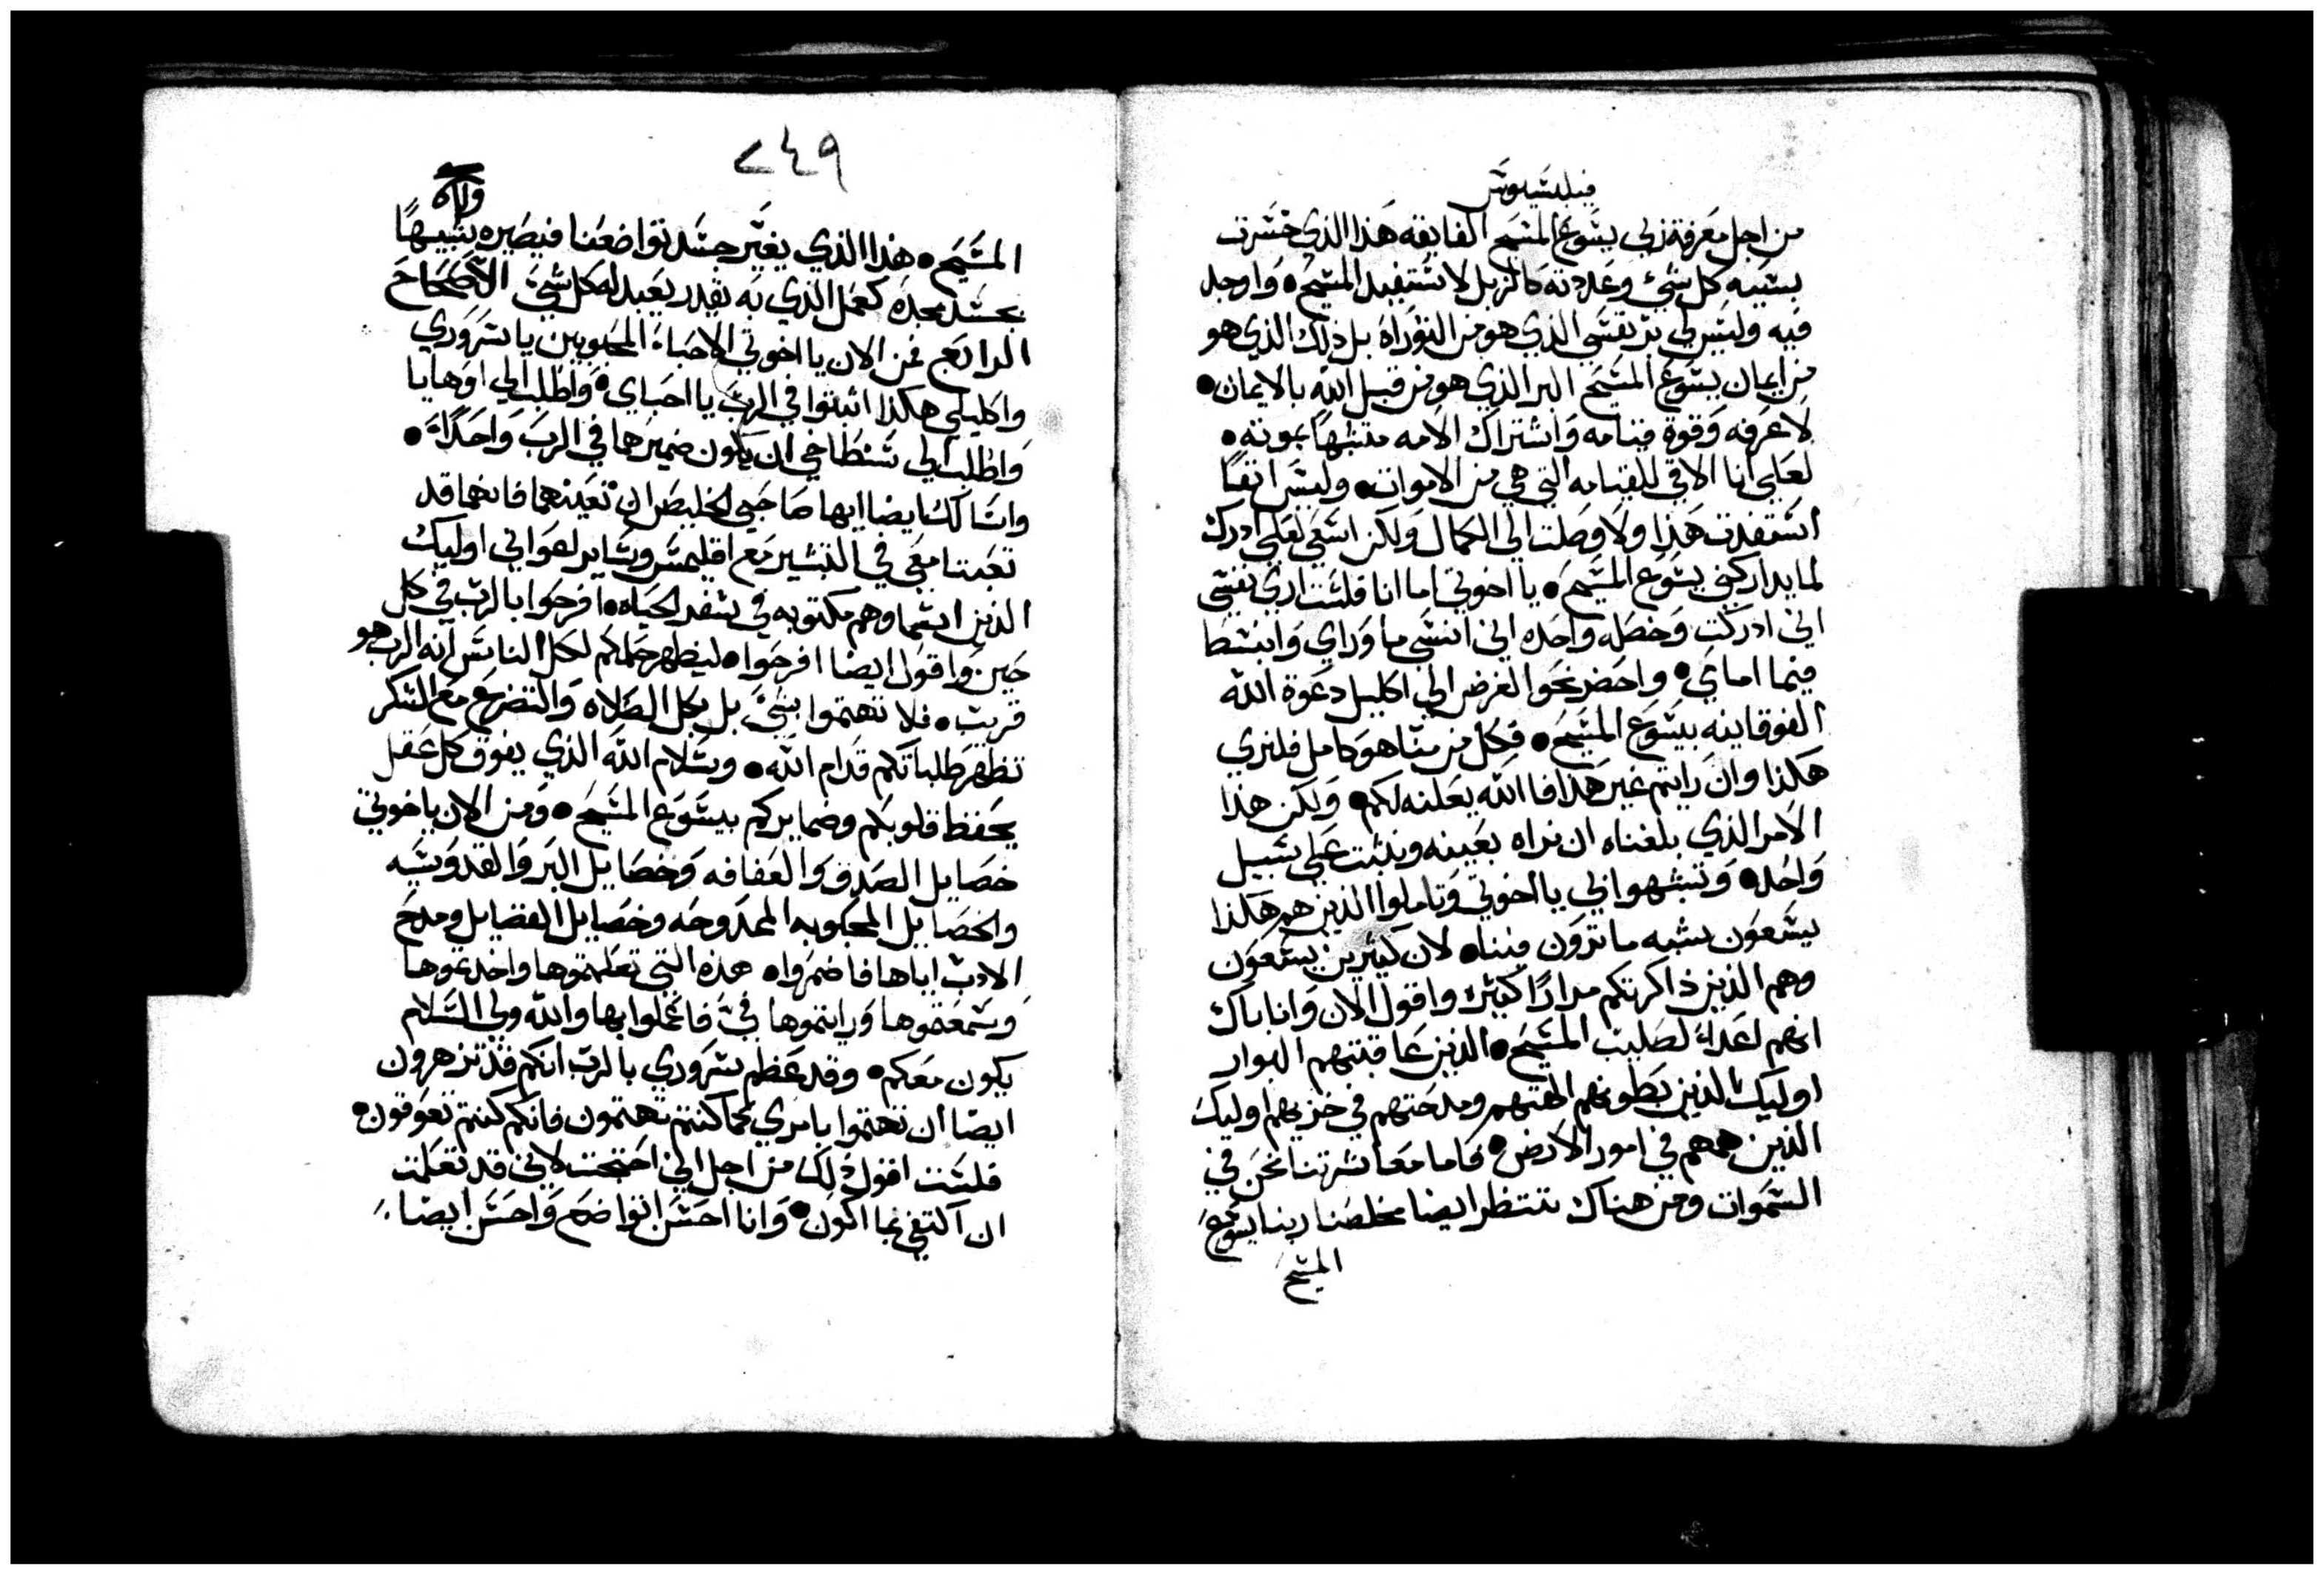 فيلبسيوس
من اجل معرفة ربي يسوع المسيح الفايقه هذا الذي خسرت
بسببه كل شي وعددته كالزبل لاستفيد المسيح • واوجد
فيه وليس لي بر نفسي الذي هو من التوراه بل ذلك الذي هو
من ايمان يسوع المسيح البر الذي هو من قبل الله بالايمان •
لاعرفه وقوة قيامه واشتراك الامه متشبهاً بموته •
لعلي انا الاقي للقيامه التي هي من الاموات • وليس انفًا
استفدت هذا ولا وصلت الي الكمال ولكن اسعي لعلي ادرك
لما يداركني يسوع المسيح • يا اخوتي اما انا فلست اري نفسي
اني ادركت وخصله واحده اني انسي ما وراي وابنسط
فيما امامي • واحضر نحو الغرض الي اكليل دعوة الله
الفوقانيه بيسوع المسيح • فكل من منا هو كامل فليري
هكذا وان رايتم غير هذا فا الله يعلنه لكم • ولكن هذا
الامر الذي بلغناه ان نراه بعينه ونثبت علي سبيل
واحد • وتشبهوا بي يا اخوتي وتاملوا الذين هم هكذا
يسعون بشبه ما ترون فينا • لان كثيرين يسعون
وهم الذين ذاكرتكم مرارًا كثيره واقول الان وانا باك
انهم اعداء لصليب المسيح • الذين عاقبتهم البوار
اوليك الذين بطونهم الهتهم ومدحتهم في خزيهم اوليك
الذين همهم في امور الارض • فاما معاشرتنا نحن في
السموات ومن هناك ننتظر ايضا مخلصنا ربنا يسوع
المسيح
٢٤٩
المسيح • هذا الذي يغير جسد تواضعنا فيصيره شبيهًا
بجسد مجده كعمل الذي به يقدر يعبد له كل شي • الاصحاح
الرابع فمن الان يا اخوتي الاحباء المحبوبين يا سروري
واكليلي هكذا اثبتوا في الرب يا احباي • واطلب الي اوهايا
واطلب الي سنطاخي ان يكون ضميرها في الرب واحدًا •
واسالك ايضا ايها صاحبي الخليط ان تعينهما فانهما قد
تعبتا معي في التبشير مع اقليمس وساير اعواني اوليك
الذين اسماوهم مكتوبه في سفر الحياه • افرحوا بالرب في كل
حين واقول ايضا افرحوا • ليظهر حلمكم لكل الناس انه الرب هو
قريب • فلا تهتموا بشي بل بكل الصلاه والتضرع مع الشكر
تظهر طلباتكم قدام الله • وسلام الله الذي يفوق كل عقل
يحفظ قلوبكم وضمايركم بيسوع المسيح • ومن الان يا خوتي
خصايل الصدق والعفافه وخصايل البر والقدوسيه
والخصايل المحبوبه الممدوحه وخصايل الفضايل ومدح
الادب اياها فاضمروا • هذه التي تعلمتموها واخدتموها
وسمعتموها ورايتموها في فاعملوا بها والله ولي السلام
يكون معكم • وقد عظم سروري بالرب انكم قد تزهرون
ايضا ان تهتموا بامري كما كنتم تهتمون فانكم كنتم تعوقون •
فلست اقول ذلك من اجل اني احتجت لاني قد تعلمت
ان اكتفي بما اكون • وانا احسن اتواضع واحسن ايضا